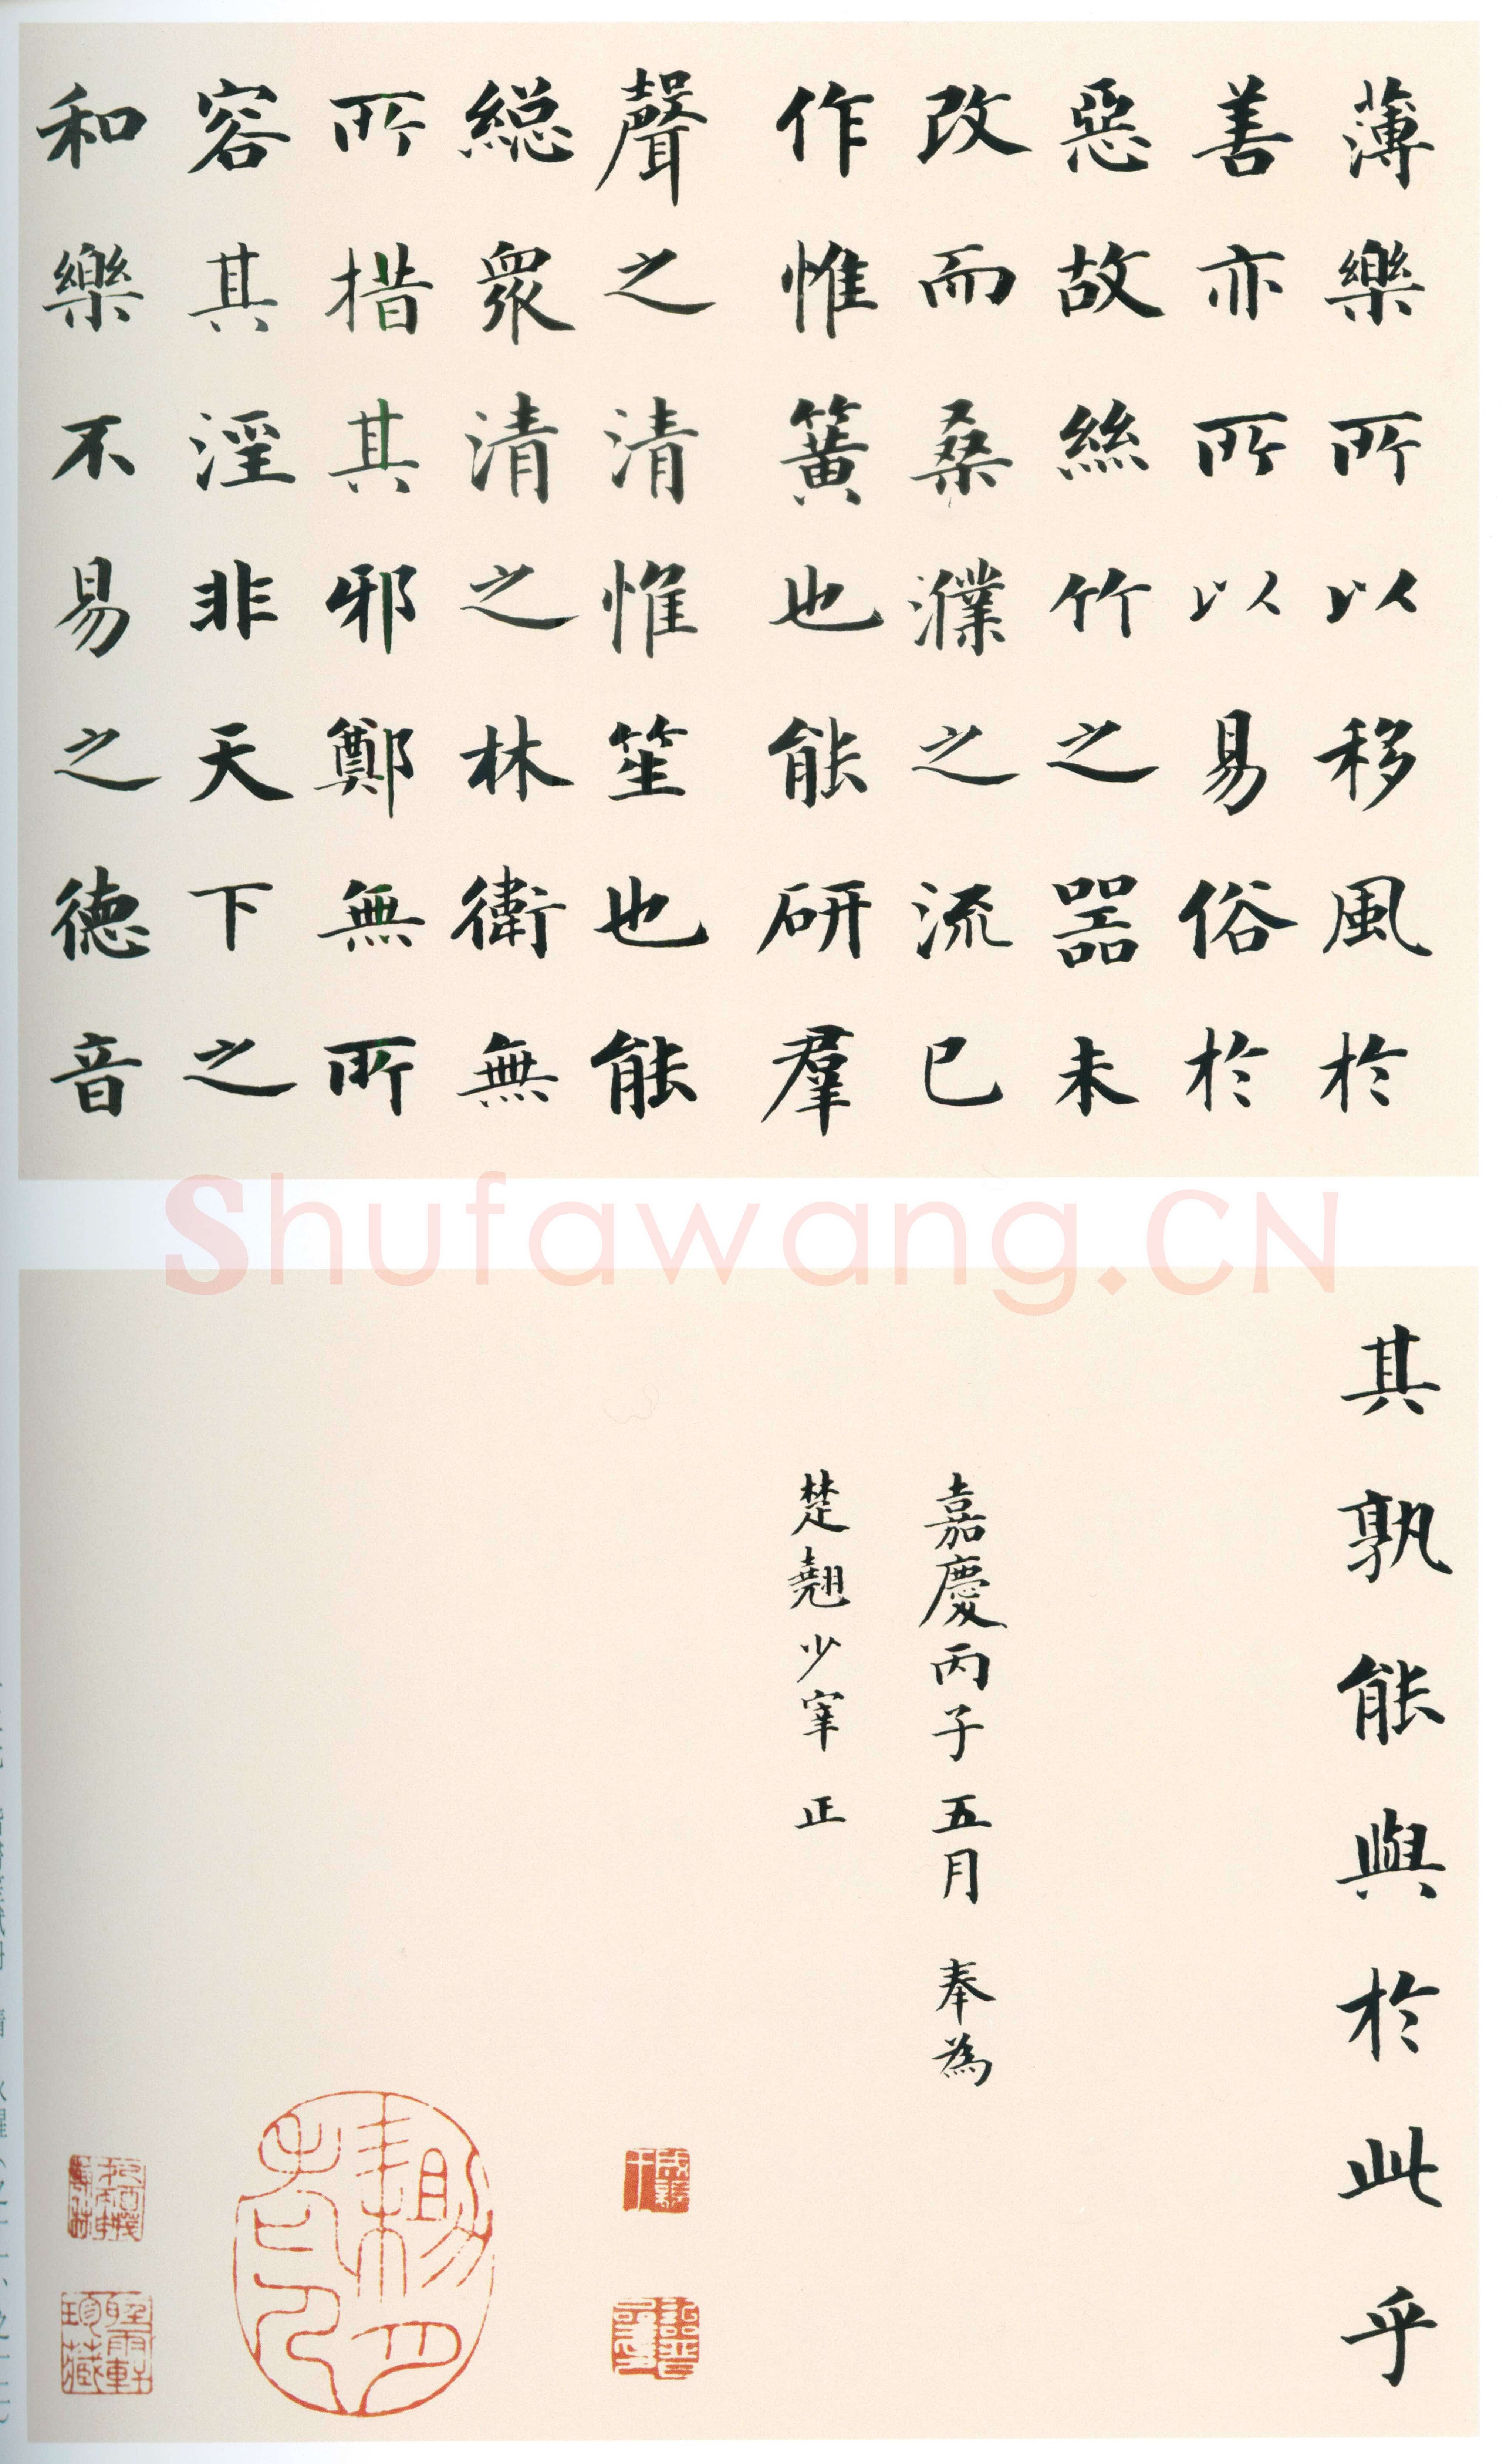 薄樂所以移風於
善亦所以易俗於
惡故絲竹之器未
改而桑濮之流已
作惟簧也能研羣
聲之清惟笙也能
総衆清之林衛無
所措其邪鄭無所
容其淫非天下之
和樂不易之德音
Shufawang.CN
其孰能與於此乎
嘉慶丙子五月 奉為
楚翹少宰 正